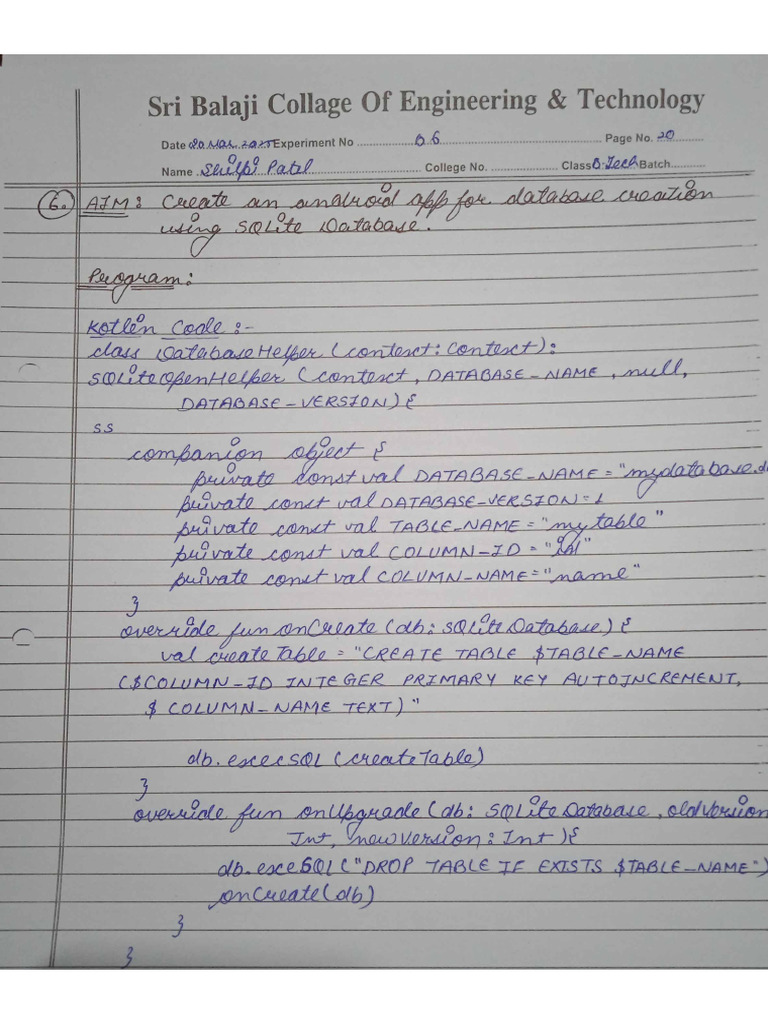 Sri Balaji Collage Of Engineering & Technology
Date 20 Mar. 2025 Experiment No 06 Page No. 20
Name Shilpi Patel College No. Class B.Tech Batch
6. AIM: Create an android app for database creation
using SQLite Database.
Program:
Kotlin Code :-
class DatabaseHelper (context: Context):
SQLiteOpenHelper (context, DATABASE_NAME, null,
DATABASE_VERSION) {
ss
companion object {
private const val DATABASE_NAME = "mydatabase.d
private const val DATABASE_VERSION = 1
private const val TABLE_NAME = "mytable"
private const val COLUMN_ID = "id"
private const val COLUMN_NAME = "name"
}
override fun onCreate (db: SQLiteDatabase) {
val createTable = "CREATE TABLE $TABLE_NAME
($COLUMN_ID INTEGER PRIMARY KEY AUTOINCREMENT,
$ COLUMN_NAME TEXT)"
db.execSQL (createTable)
}
override fun onUpgrade (db: SQLiteDatabase, oldVersion
Int, newVersion: Int) {
db.execSQL ("DROP TABLE IF EXISTS $TABLE_NAME")
onCreate (db)
}
}